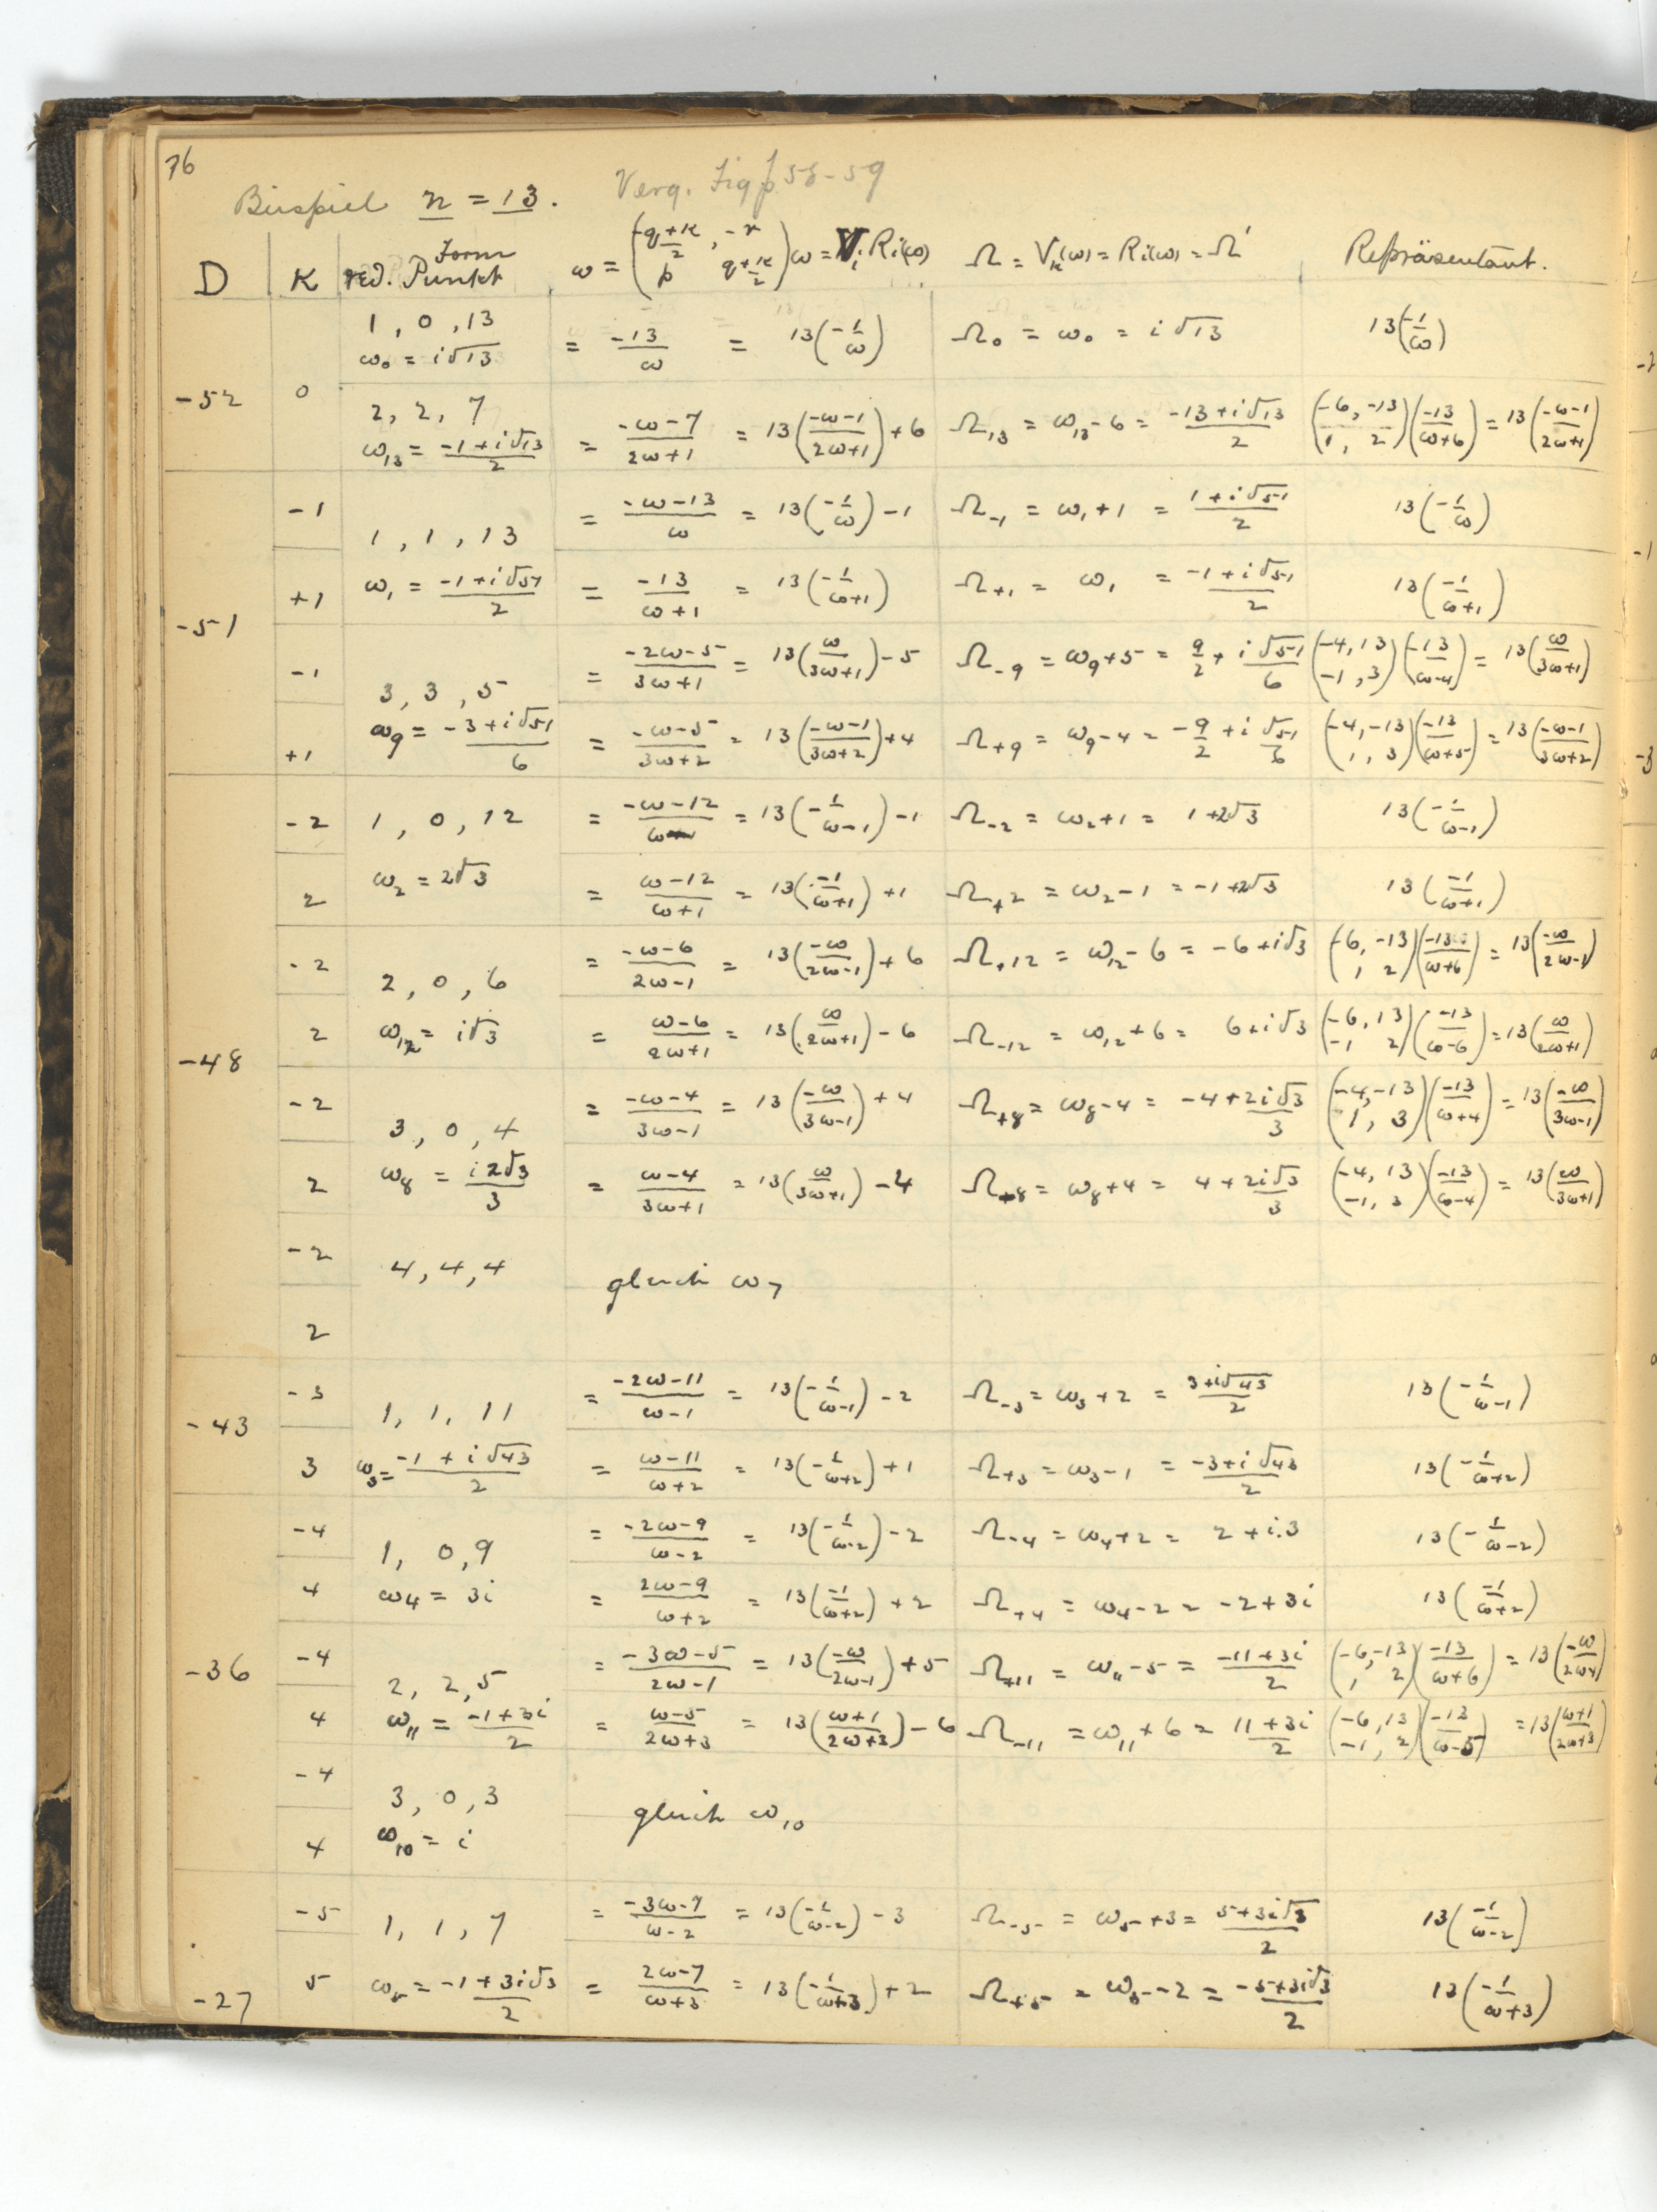 76
Beispiel n = 13. Verg. Fig p. 58-59
D | κ | red. Form Punkt | ω = ( -q+κ/2 , -r ; p q+κ/2 ) ω = V_i R_i(ω) | Ω = V_κ(ω) = R_i(ω) = Ω' | Repräsentant.
-52 | 0 | 1, 0, 13 ω₀ = i√13 | = -13/ω = 13(-1/ω) | Ω₀ = ω₀ = i√13 | 13(-1/ω)
2, 2, 7 ω₁₃ = (-1+i√13)/2 | = (-ω-7)/(2ω+1) = 13((-ω-1)/(2ω+1)) + 6 | Ω₁₃ = ω₁₃-6 = (-13+i√13)/2 | (-6, -13 ; 1, 2)(-13/(ω+6)) = 13((-ω-1)/(2ω+1))
-51 | -1 | 1, 1, 13 | = (-ω-13)/ω = 13(-1/ω) - 1 | Ω₋₁ = ω₁+1 = (1+i√51)/2 | 13(-1/ω)
+1 | ω₁ = (-1+i√51)/2 | = -13/(ω+1) = 13(-1/(ω+1)) | Ω₊₁ = ω₁ = (-1+i√51)/2 | 13(-1/(ω+1))
-1 | 3, 3, 5 | = (-2ω-5)/(3ω+1) = 13(ω/(3ω+1)) - 5 | Ω₋₉ = ω₉+5 = 9/2 + i√51/6 | (-4, 13 ; -1, 3)(-13/(ω-4)) = 13(ω/(3ω+1))
+1 | ω₉ = (-3+i√51)/6 | = (-ω-5)/(3ω+2) = 13((-ω-1)/(3ω+2)) + 4 | Ω₊₉ = ω₉-4 = -9/2 + i√51/6 | (-4, -13 ; 1, 3)(-13/(ω+5)) = 13((-ω-1)/(3ω+2))
-48 | -2 | 1, 0, 12 | = (-ω-12)/(ω-1) = 13(-1/(ω-1)) - 1 | Ω₋₂ = ω₂+1 = 1+2√3 | 13(-1/(ω-1))
2 | ω₂ = 2√3 | = (ω-12)/(ω+1) = 13(-1/(ω+1)) + 1 | Ω₊₂ = ω₂-1 = -1+2√3 | 13(-1/(ω+1))
-2 | 2, 0, 6 | = (-ω-6)/(2ω-1) = 13(-ω/(2ω-1)) + 6 | Ω₊₁₂ = ω₁₂-6 = -6+i√3 | (-6, -13 ; 1 2)(-13/(ω+6)) = 13(-ω/(2ω-1))
2 | ω₁₂ = i√3 | = (ω-6)/(2ω+1) = 13(ω/(2ω+1)) - 6 | Ω₋₁₂ = ω₁₂+6 = 6+i√3 | (-6, 13 ; -1 2)(-13/(ω-6)) = 13(ω/(2ω+1))
-2 | 3, 0, 4 | = (-ω-4)/(3ω-1) = 13(-ω/(3ω-1)) + 4 | Ω₊₈ = ω₈-4 = -4 + 2i√3/3 | (-4, -13 ; 1, 3)(-13/(ω+4)) = 13(-ω/(3ω-1))
2 | ω₈ = i2√3/3 | = (ω-4)/(3ω+1) = 13(ω/(3ω+1)) - 4 | Ω₋₈ = ω₈+4 = 4 + 2i√3/3 | (-4, 13 ; -1, 3)(-13/(ω-4)) = 13(ω/(3ω+1))
-2 | 4, 4, 4 | gleich ω₇
2
-43 | -3 | 1, 1, 11 | = (-2ω-11)/(ω-1) = 13(-1/(ω-1)) - 2 | Ω₋₃ = ω₃+2 = (3+i√43)/2 | 13(-1/(ω-1))
3 | ω₃ = (-1+i√43)/2 | = (ω-11)/(ω+2) = 13(-1/(ω+2)) + 1 | Ω₊₃ = ω₃-1 = (-3+i√43)/2 | 13(-1/(ω+2))
-36 | -4 | 1, 0, 9 | = (-2ω-9)/(ω-2) = 13(-1/(ω-2)) - 2 | Ω₋₄ = ω₄+2 = 2+i.3 | 13(-1/(ω-2))
4 | ω₄ = 3i | = (2ω-9)/(ω+2) = 13(-1/(ω+2)) + 2 | Ω₊₄ = ω₄-2 = -2+3i | 13(-1/(ω+2))
-4 | 2, 2, 5 | = (-3ω-5)/(2ω-1) = 13(-ω/(2ω-1)) + 5 | Ω₊₁₁ = ω₁₁-5 = (-11+3i)/2 | (-6, -13 ; 1 2)(-13/(ω+6)) = 13(-ω/(2ω-1))
4 | ω₁₁ = (-1+3i)/2 | = (ω-5)/(2ω+3) = 13((ω+1)/(2ω+3)) - 6 | Ω₋₁₁ = ω₁₁+6 = (11+3i)/2 | (-6, 13 ; -1, 2)(-13/(ω-5)) = 13((ω+1)/(2ω+3))
-4 | 3, 0, 3 | gleich ω₁₀
4 | ω₁₀ = i
-27 | -5 | 1, 1, 7 | = (-3ω-7)/(ω-2) = 13(-1/(ω-2)) - 3 | Ω₋₅ = ω₅+3 = (5+3i√3)/2 | 13(-1/(ω-2))
5 | ω₅ = (-1+3i√3)/2 | = (2ω-7)/(ω+3) = 13(-1/(ω+3)) + 2 | Ω₊₅ = ω₅-2 = (-5+3i√3)/2 | 13(-1/(ω+3))